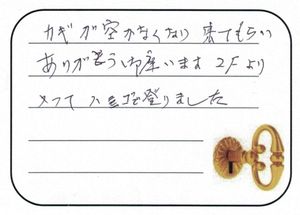 カギが空かなくなり 来てもらい
ありがとう御座います 2Fより
入
登りました